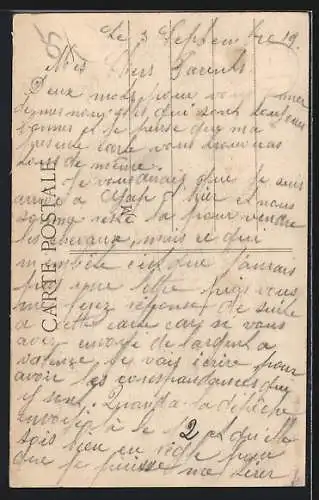 Le 3 Septembre 19
Mes Chers Parents
Deux mots pour vous
de mes nouvelles qui sont toujours
bonnes et je pense que ma
présente carte vous trouvera
tous de même.
Je vous dirais que je suis
arrivé a hier et nous
resté la pour vendre
les chevaux, mais ce qui
m'embête c'est que j'aurais
pas une lettre puis vous
me ferez réponse de suite
a cette carte car si vous
avez envoyé de l'argent a
je vais écrire pour
avoir les correspondances que
y sont. Quand a la dépêche
envoyé a le 2 et qu'elle
sois bien en règle pour
que je puisse me tirer
CARTE POSTALE
M